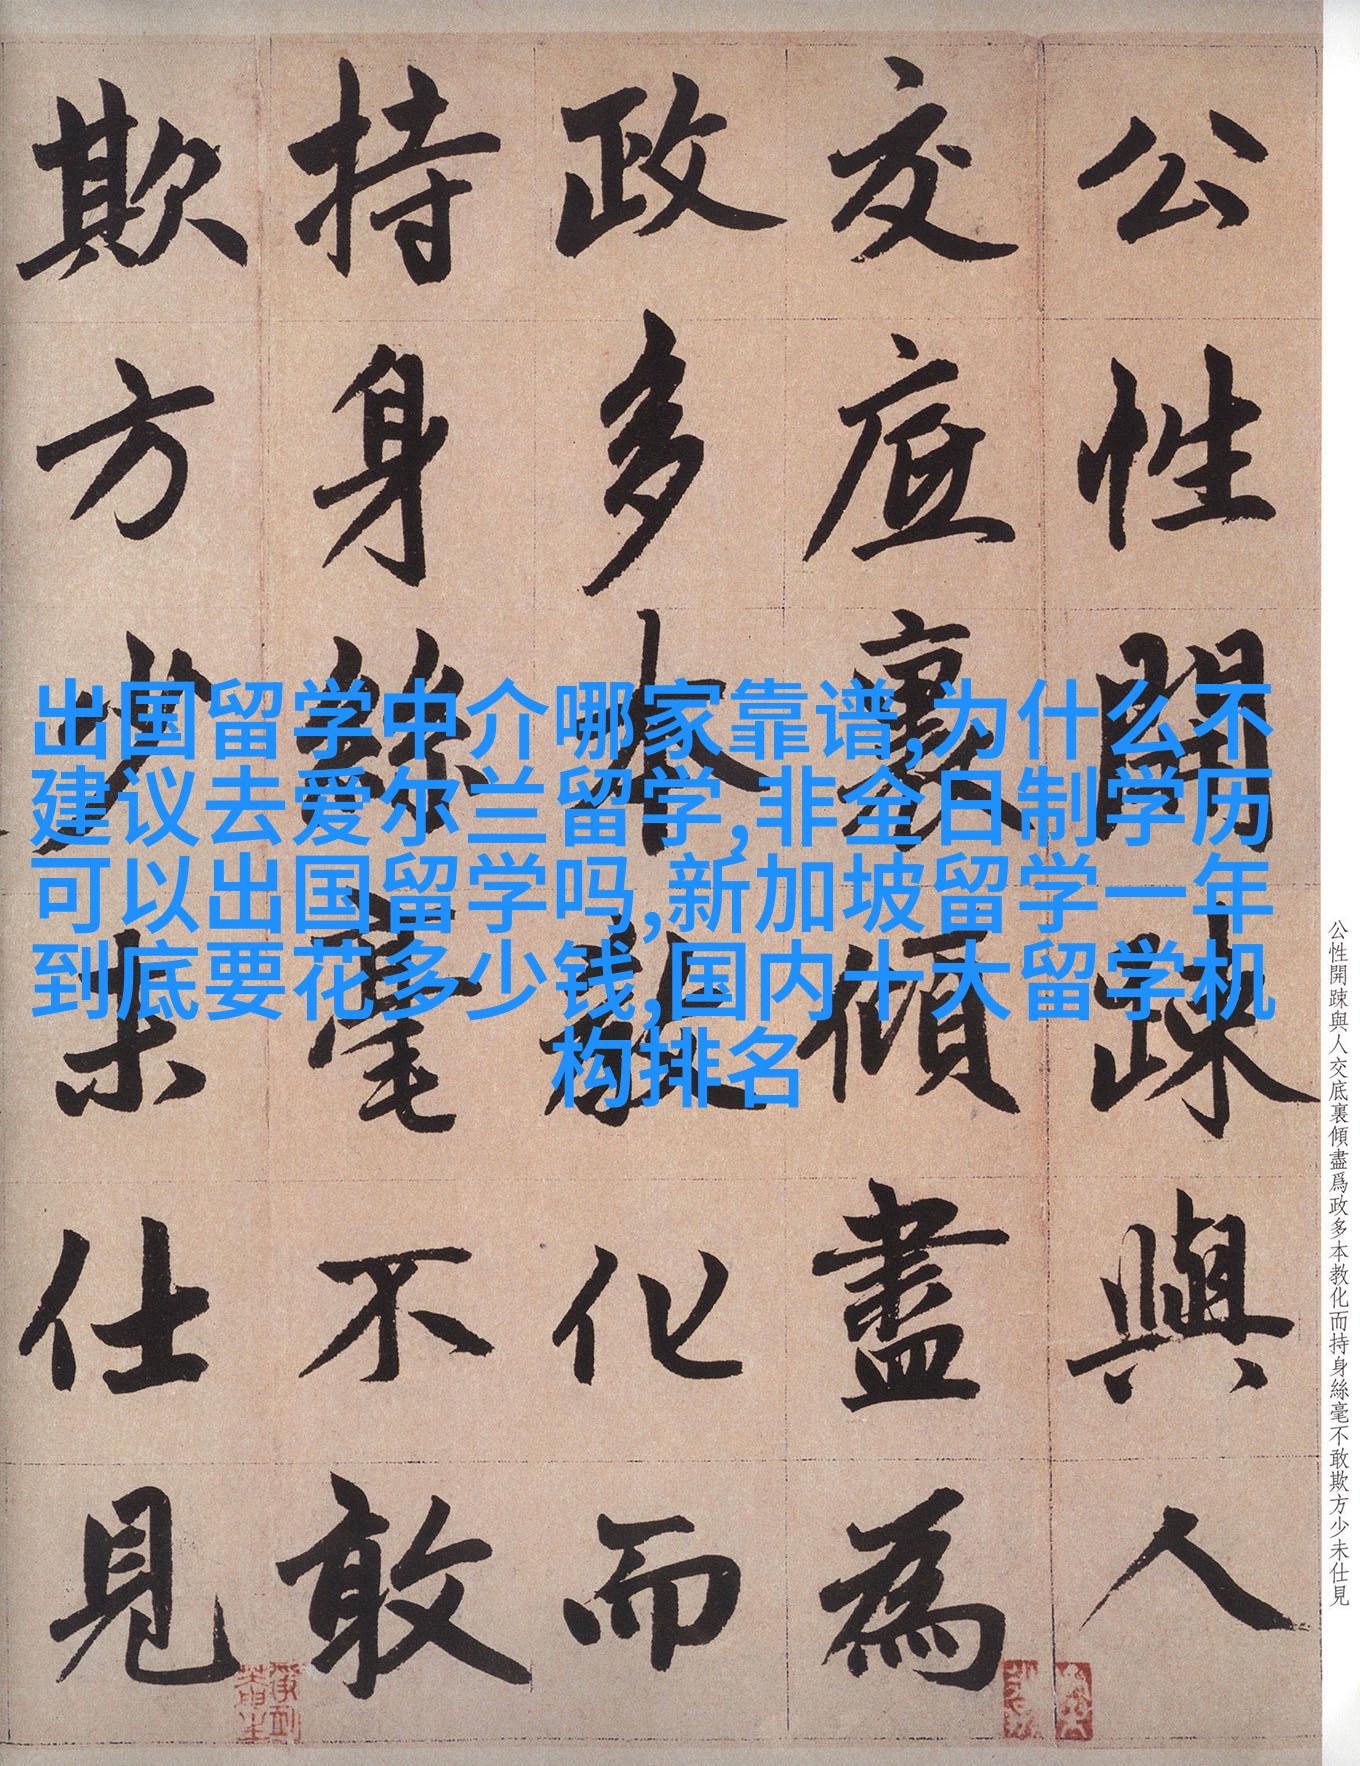 公性開踈與人
交底裏傾盡為
政多本教化而
持身絲毫不敢
欺方少未仕見
出国留学中介哪家靠谱,为什么不
建议去爱尔兰留学,非全日制学历
可以出国留学吗,新加坡留学一年
到底要花多少钱,国内十大留学机
构排名
公性開踈與人交底裏傾盡爲政多本教化而持身絲毫不敢欺方少未仕見